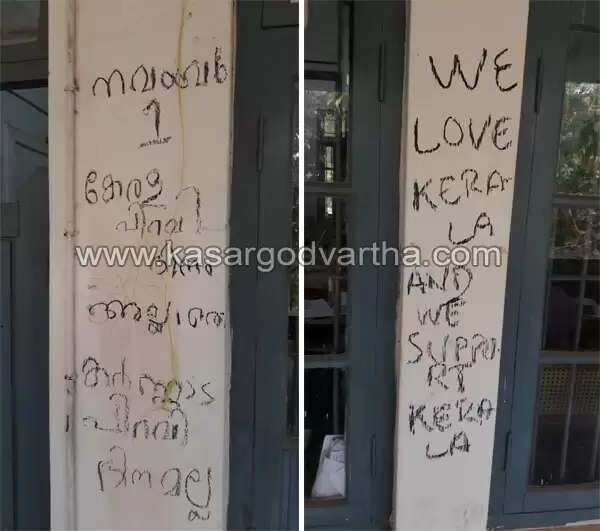 നവംബർ
1
കേരള
പിറവി
ദിനം
അല്ലാതെ
കർണ്ണാട
പിറവി
ദിനമല്ല
WE
LOVE
KERA
LA
AND
WE
SUPPO
RT
KERA
LA
www.kasargodvartha.com